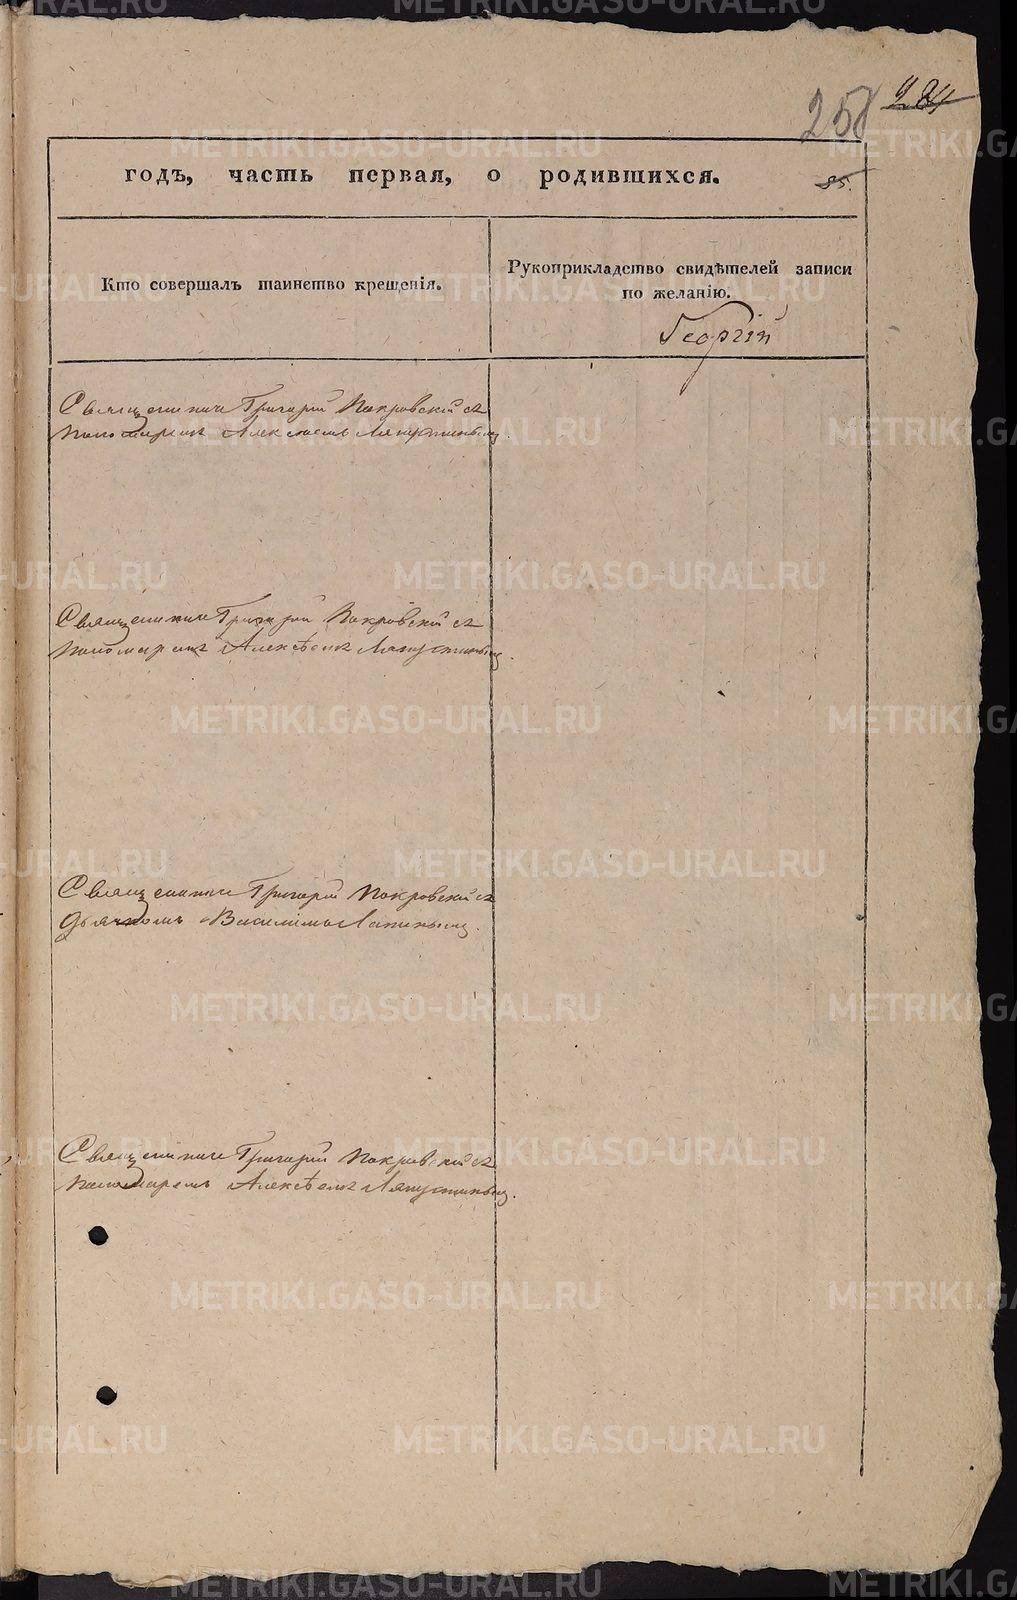 258 284
годъ, часть первая, о родившихся. 85.
Кто совершалъ таинство крещенія.
Рукоприкладство свидѣтелей записи
по желанію.
Георгій
Священникъ Григорій Покровскій съ
пономаремъ Алексѣемъ Ляпустинымъ
Священникъ Григорій Покровскій съ
пономаремъ Алексѣемъ Ляпустинымъ.
Священникъ Григорій Покровскій съ
дьячкомъ Василіемъ Лапинымъ.
Священникъ Григорій Покровскій съ
пономаремъ Алексѣемъ Ляпустинымъ.
METRIKI.GASO-URAL.RU